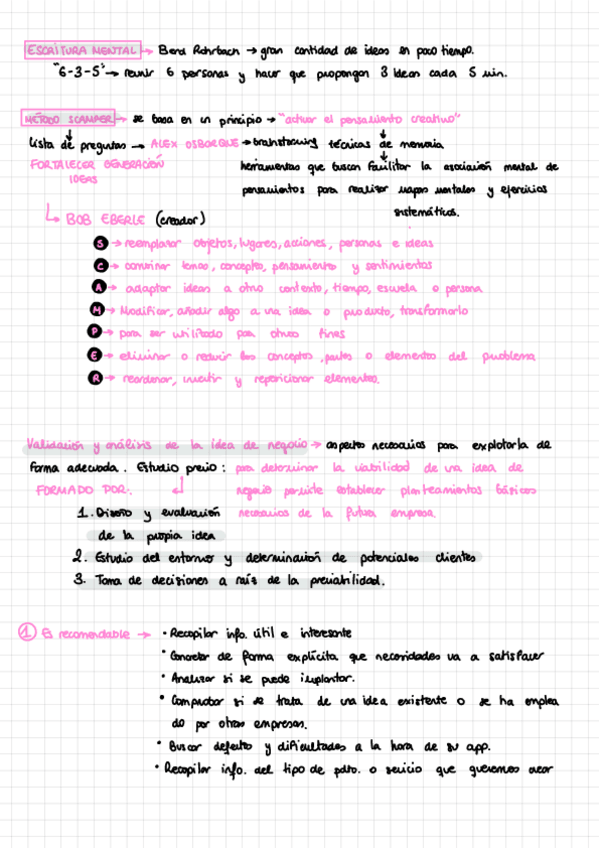 ESCRITURA MENTAL → Bernd Rohrbach → gran cantidad de ideas en poco tiempo.
"6-3-5" → reunir 6 personas y hacer que propongan 3 ideas cada 5 min.
MÉTODO SCAMPER → se basa en un principio → "activar el pensamiento creativo"
Lista de preguntas → ALEX OSBORGNE → brainstorming técnicas de memoria
FORTALECER GENERACIÓN IDEAS
herramientas que buscan facilitar la asociación mental de
pensamientos para realizar mapas mentales y ejercicios
sistemáticos.
BOB EBERLE (creador)
S → reemplazar objetos, lugares, acciones, personas e ideas
C → combinar temas, conceptos, pensamientos y sentimientos
A → adaptar ideas a otro contexto, tiempo, escuela o persona
M → Modificar, añadir algo a una idea o producto, transformarlo
P → para ser utilizado para otros fines
E → eliminar o reducir los conceptos, partes o elementos del problema
R → reordenar, invertir y reposicionar elementos.
Validación y análisis de la idea de negocio → aspectos necesarios para explotarla de
forma adecuada. Estudio previo: para determinar la viabilidad de una idea de
FORMADO POR: negocio permite establecer planteamientos básicos
1. Diseño y evaluación necesarios de la futura empresa.
de la propia idea
2. Estudio del entorno y determinación de potenciales clientes
3. Toma de decisiones a raíz de la previabilidad.
① Es recomendable → • Recopilar info. útil e interesante
• Concretar de forma explícita que necesidades va a satisfacer
• Analizar si se puede implantar.
• Comprobar si se trata de una idea existente o se ha emplea
do por otras empresas.
• Buscar defectos y dificultades a la hora de su app.
• Recopilar info. del tipo de pdto. o servicio que queremos crear